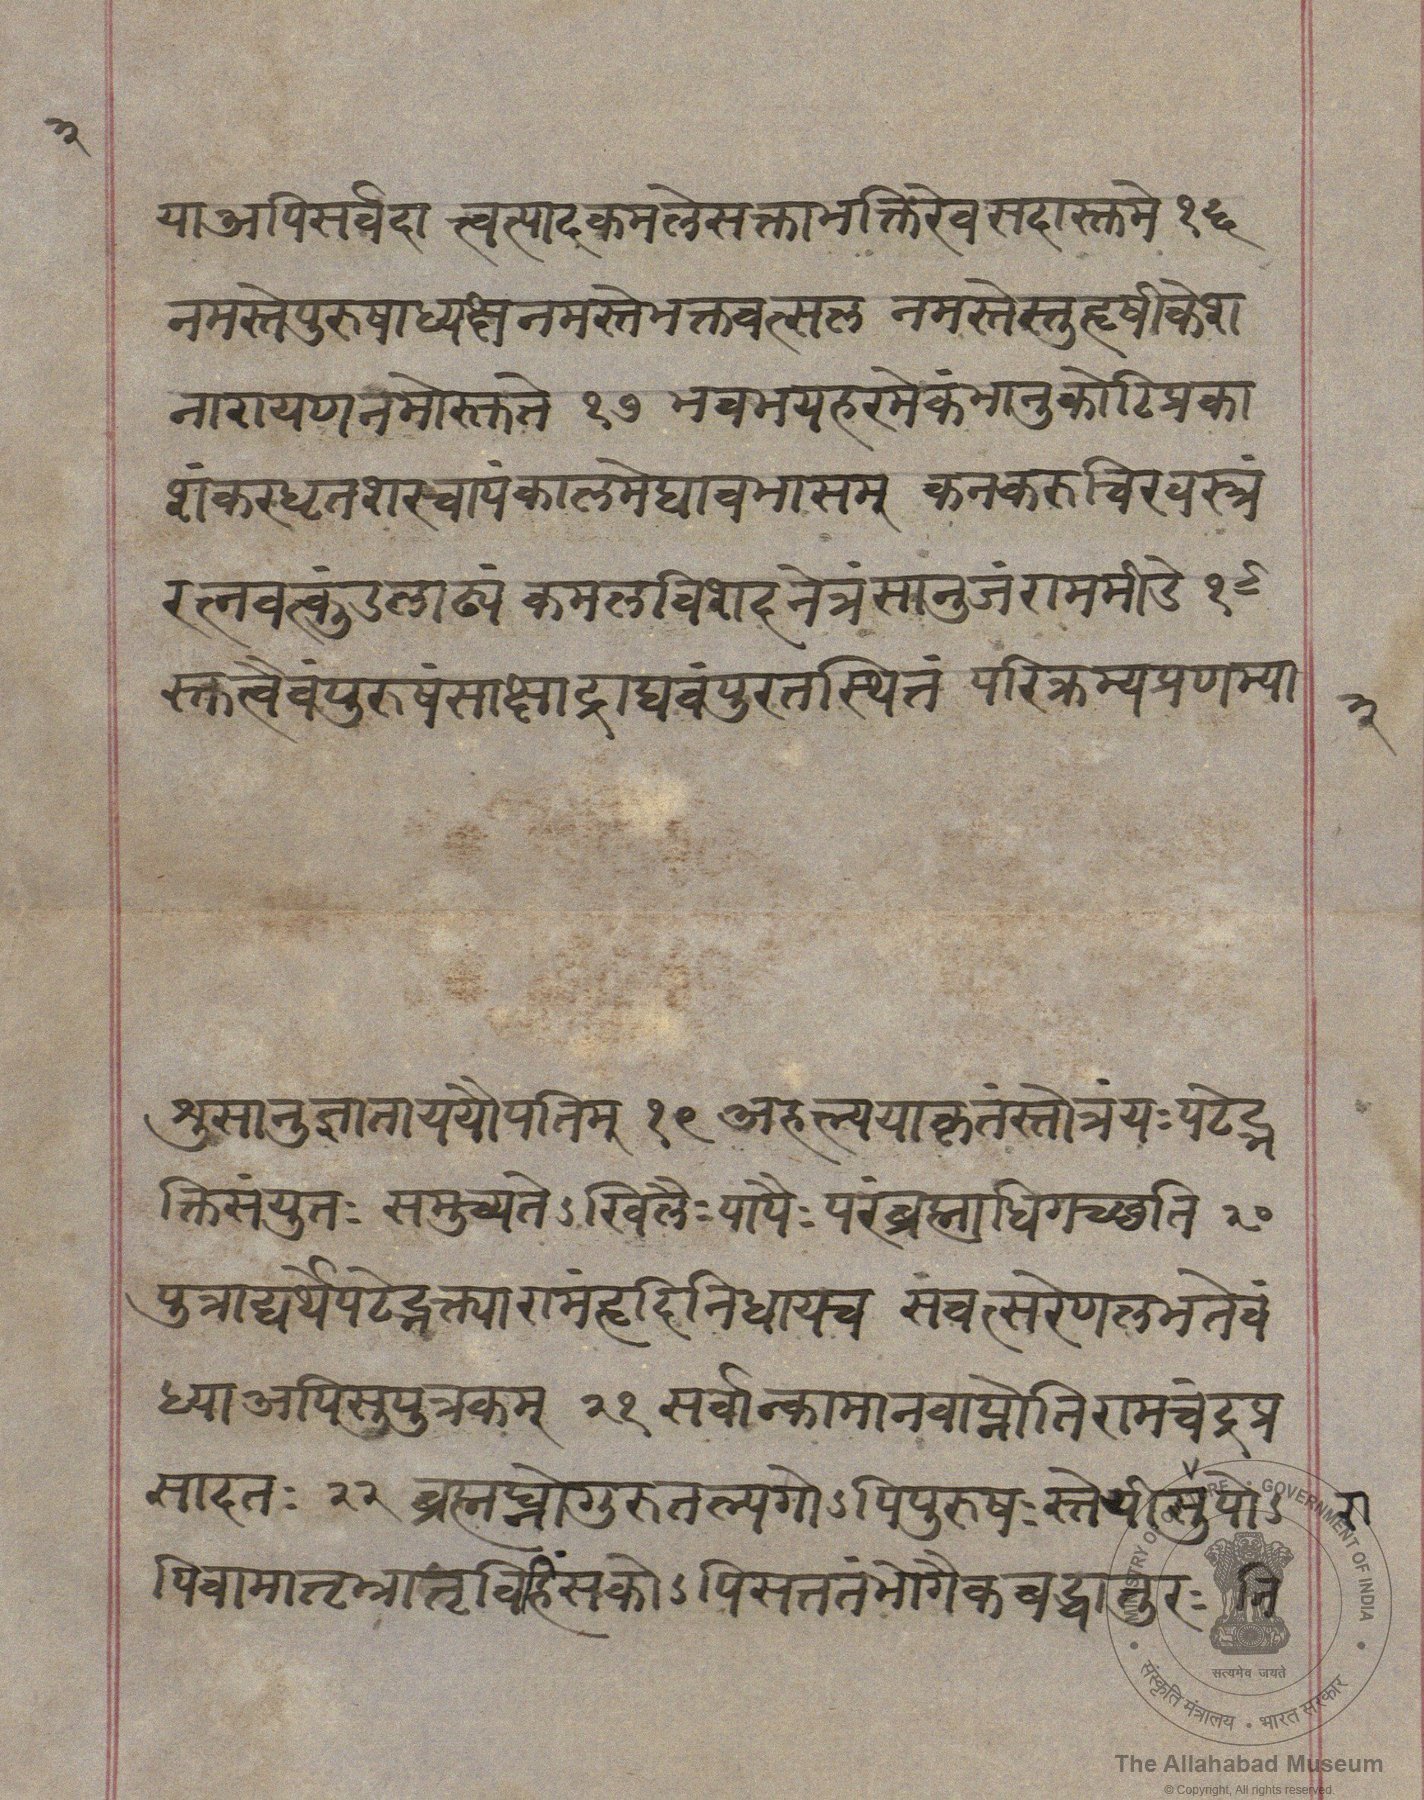 ३
या अपि सर्वदा त्वत्पादकमले सक्ता भक्तिरेव सदास्तु मे १६
नमस्ते पुरुषाध्यक्ष नमस्ते भक्तवत्सल नमस्तेस्तु हृषीकेश
नारायण नमोस्तु ते १७ भवभयहरमेकं भानुकोटिप्रका
शं करधृतशरचापं कालमेघावभासम् कनकरुचिरवस्त्रं
रत्नवत्कुंडलाढ्यं कमलविशदनेत्रं सानुजं राममीडे १८
स्तुत्वैवं पुरुषं साक्षाद्राघवं पुरतस्थितं परिक्रम्य प्रणम्या
३
श्रु सानुज्ञाता ययौ पतिम् १९ अहल्यया कृतं स्तोत्रं यः पठेद्भ
क्तिसंयुतः स मुच्यतेऽखिलैः पापैः परं ब्रह्माधिगच्छति २०
पुत्राद्यर्थे पठेद्भक्त्या रामं हृदि निधाय च संवत्सरेण लभते वं
ध्या अपि सुपुत्रकम् २१ सर्वान्कामानवाप्नोति रामचंद्रप्र
सादतः २२ ब्रह्मघ्नो गुरुतल्पगोऽपि पुरुषः स्तेयी सुपोऽ
रा
पि वा मातृभ्रातृविहिंसकोऽपि सततं भोगैकबद्धातुरः नि
MINISTRY OF CULTURE • GOVERNMENT OF INDIA
सत्यमेव जयते
संस्कृति मंत्रालय • भारत सरकार
The Allahabad Museum
© Copyright, All rights reserved.